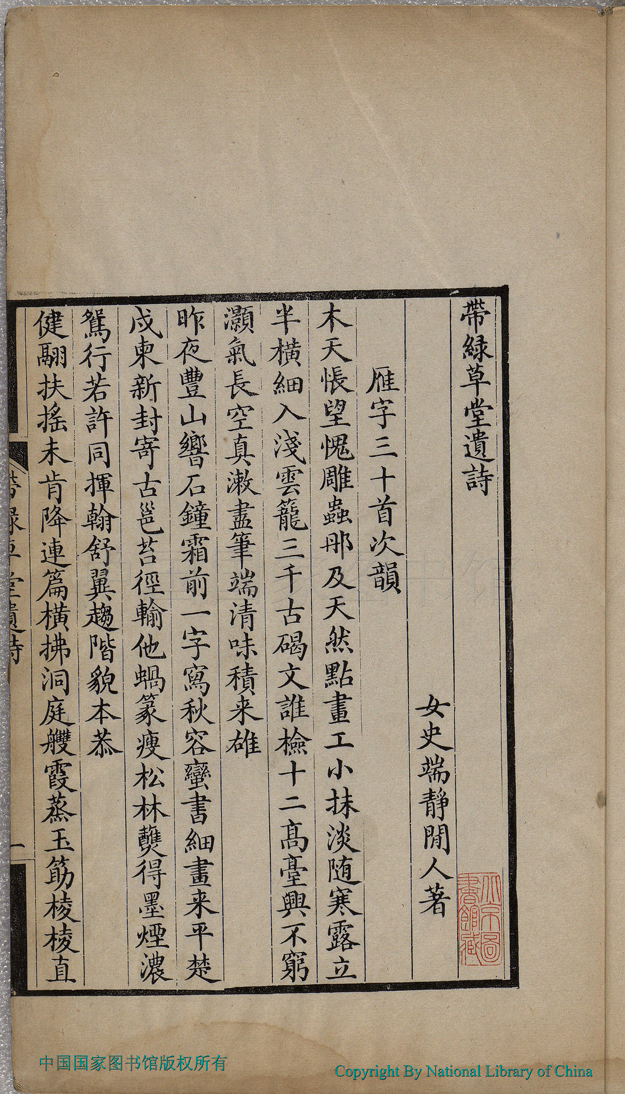 帶綠草堂遺詩
女史端靜閒人著
雁字三十首次韻
木天悵望愧雕蟲那及天然點畫工小抹淡随寒露立
半橫細入淺雲籠三千古碣文誰檢十二高臺興不窮
灝氣長空真漱盡筆端清味積来雄
昨夜豐山響石鐘霜前一字寫秋容蠻書細畫来平楚
戍柬新封寄古邕苔徑輸他蝸篆瘦松林爇得墨煙濃
鴛行若許同揮翰舒翼趨階貌本恭
健翮扶搖未肯降連篇橫拂洞庭艭霞蒸玉筯棱棱直
帶綠草堂遺詩
一
中国国家图书馆版权所有
Copyright By National Library of China